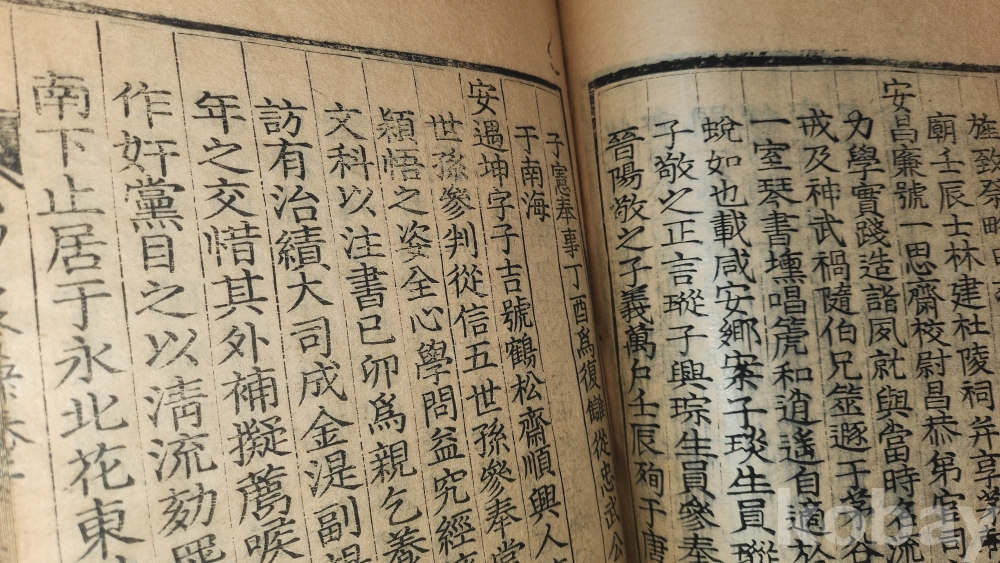 旌致祭
廟壬辰士林建杜陵祠并享
安昌廉號一思齋校尉昌恭弟官司
力學實踐造詣夙就與當時在流
戒及神武禍隨伯兄筮遯于茅谷
一室琴書壎唱箎和逍遙自適於
蛻如也載咸安鄉案子琰生員瑽
子敬之正言瑽子興琮生員參奉
晉陽敬之子義萬戶壬辰殉于唐
子憲奉事丁酉爲復讎從忠武公
于南海
安遇坤字子吉號鶴松齋順興人
世孫參判從信五世孫參奉
穎悟之姿全心學問益究經
文科以注書已卯爲親乞養
訪有治績大司成金湜副提
年之交惜其外補擬薦喉
作奸黨目之以淸流劾罷
南下止居于永北花東
kobay